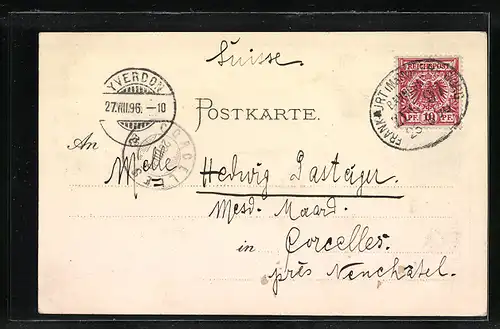 Suisse
YVERDON
27.VIII.96. –10
REICHSPOST
PF. 10 PF.
FRANKFURT
POSTKARTE.
An Melle Hedwig
Mesd. Maard.
in Corcelles.
près Neuchatel.